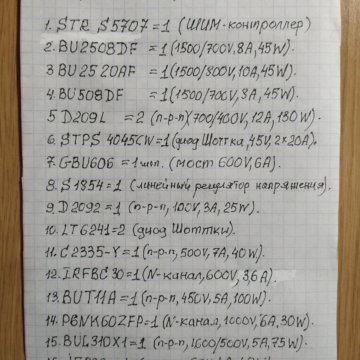 1. STR S5707 = 1 (ШИМ-контроллер)
2. BU2508DF = 1 (1500/700V, 8A, 45W)
3 BU2520AF = 1 (1500/800V, 10A, 45W)
4. BU508DF = 1 (1500/700V, 8A, 45W)
5 D209L = 2 (n-p-n)(700/400V, 12A, 130W)
6. STPS 4045CW = 1 (диод Шоттка, 45V, 2×20A).
7. GBU606 = 1шт. (мост 600V, 6A).
8. S1854 = 1 (линейный регулятор напряжения).
9. D2092 = 1 (n-p-n, 100V, 3A, 25W).
10. LT6241 = 2 (диод Шоттки).
11. C2335-Y = 1 (n-p-n, 500V, 7A, 40W).
12. IRFBC30 = 1 (N-канал, 600V, 3,6A).
13. BUT11A = 1 (n-p-n, 450V, 5A, 100W).
14. P6NK60ZFP = 1 (N-канал, 1000V, 6A, 30W).
15. BUL310X1 = 1 (n-p-n, 1000/500V, 5A, 75W)